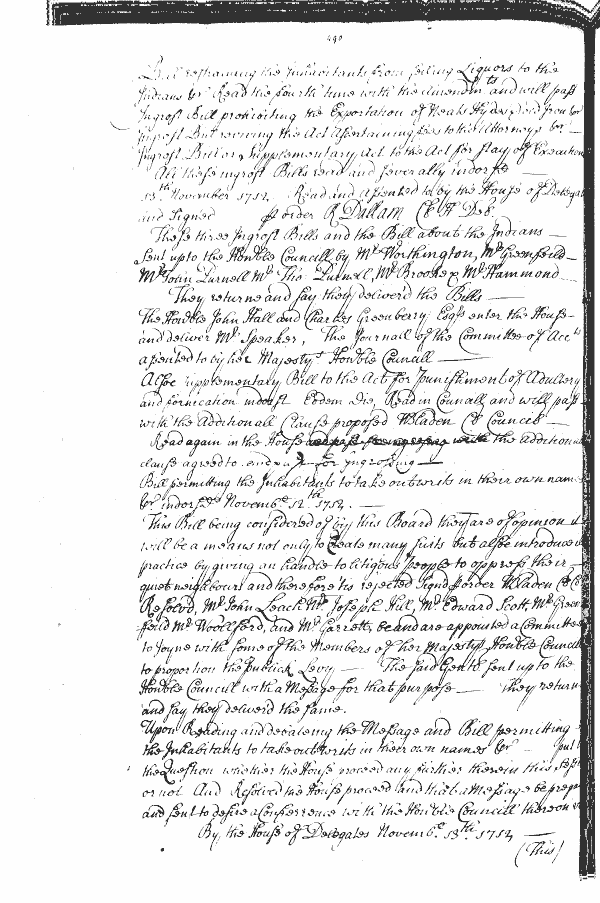 490
Bill restraining the Inhabitants from selling Liquors to the
Indians &c. Read the fourth time with the Amendmts and will pass
Ingrost Bill prohibiting the Exportation of Neats Hydes &c
Ingrost Bill reviving the Act Ascertaining fees to the Attorneys &c
Ingrost Bill or Supplementary Act to the Act for stay of Execution
All these ingrost Bills read and severally indorst
13th November 1712 Read and Assented to by the House of Delegat
and Signed p order R Dallam Cl H Del.
These three Ingrost Bills and the Bill about the Indians
sent up to the Honble Councill by Mr Worthington, Mr Greenfeild
Mr John Purnell Mr Tho Purnell, Mr Brooke & Mr Hammond
They returne and say they deliverd the Bills
The Honble John Hall and Charles Greenberry Esqrs enter the House
and deliver Mr Speaker, The Journall of the Committee of Acctts
assented to by her Majestys Honble Councill
Alsoe supplementary Bill to the Act for punishment of Adultery
and fornication indorst Eodem Die, Read in Councill, and will pass
with the Additionall Clause proposed WBladen Cl Council
Read again in the House the Addition
clause agreed to for Ingrossing
Bill permitting the Inhabitants to take out writs in their own name
&c indorsed Novembr 12th 1712.
This Bill being considered of by this Board they are of opinion
will be a means not only to Create many suits but alsoe introduce
practice by giving an handle to litigious people to oppress their
quiet neighbours and therefore tis rejected Signd p order WBladen Cl
Resolvd, Mr John Leach Mr Joseph Hill, Mr Edward Scott, Mr Green
feild Mr Woolford, and Mr Garrett, be and are appointed a Committee
to Joyne with some of the Members of her Majestys Honble Councill
to proportion the publick Levy The said Gents sent up to the
Honble Councill with a Message for that purpose They return
and say they deliverd the same.
Upon Reading and debateing the Message and Bill permitting
the Inhabitants to take out writs in their own names &c put
the Question whether the House proceed any further therein this Sess
or not And Resolved the House proceed and that a Message be prep
and sent to desire a Conference with the Honble Councill thereon
By the House of Delegates Novembr 13th 1712
(This)